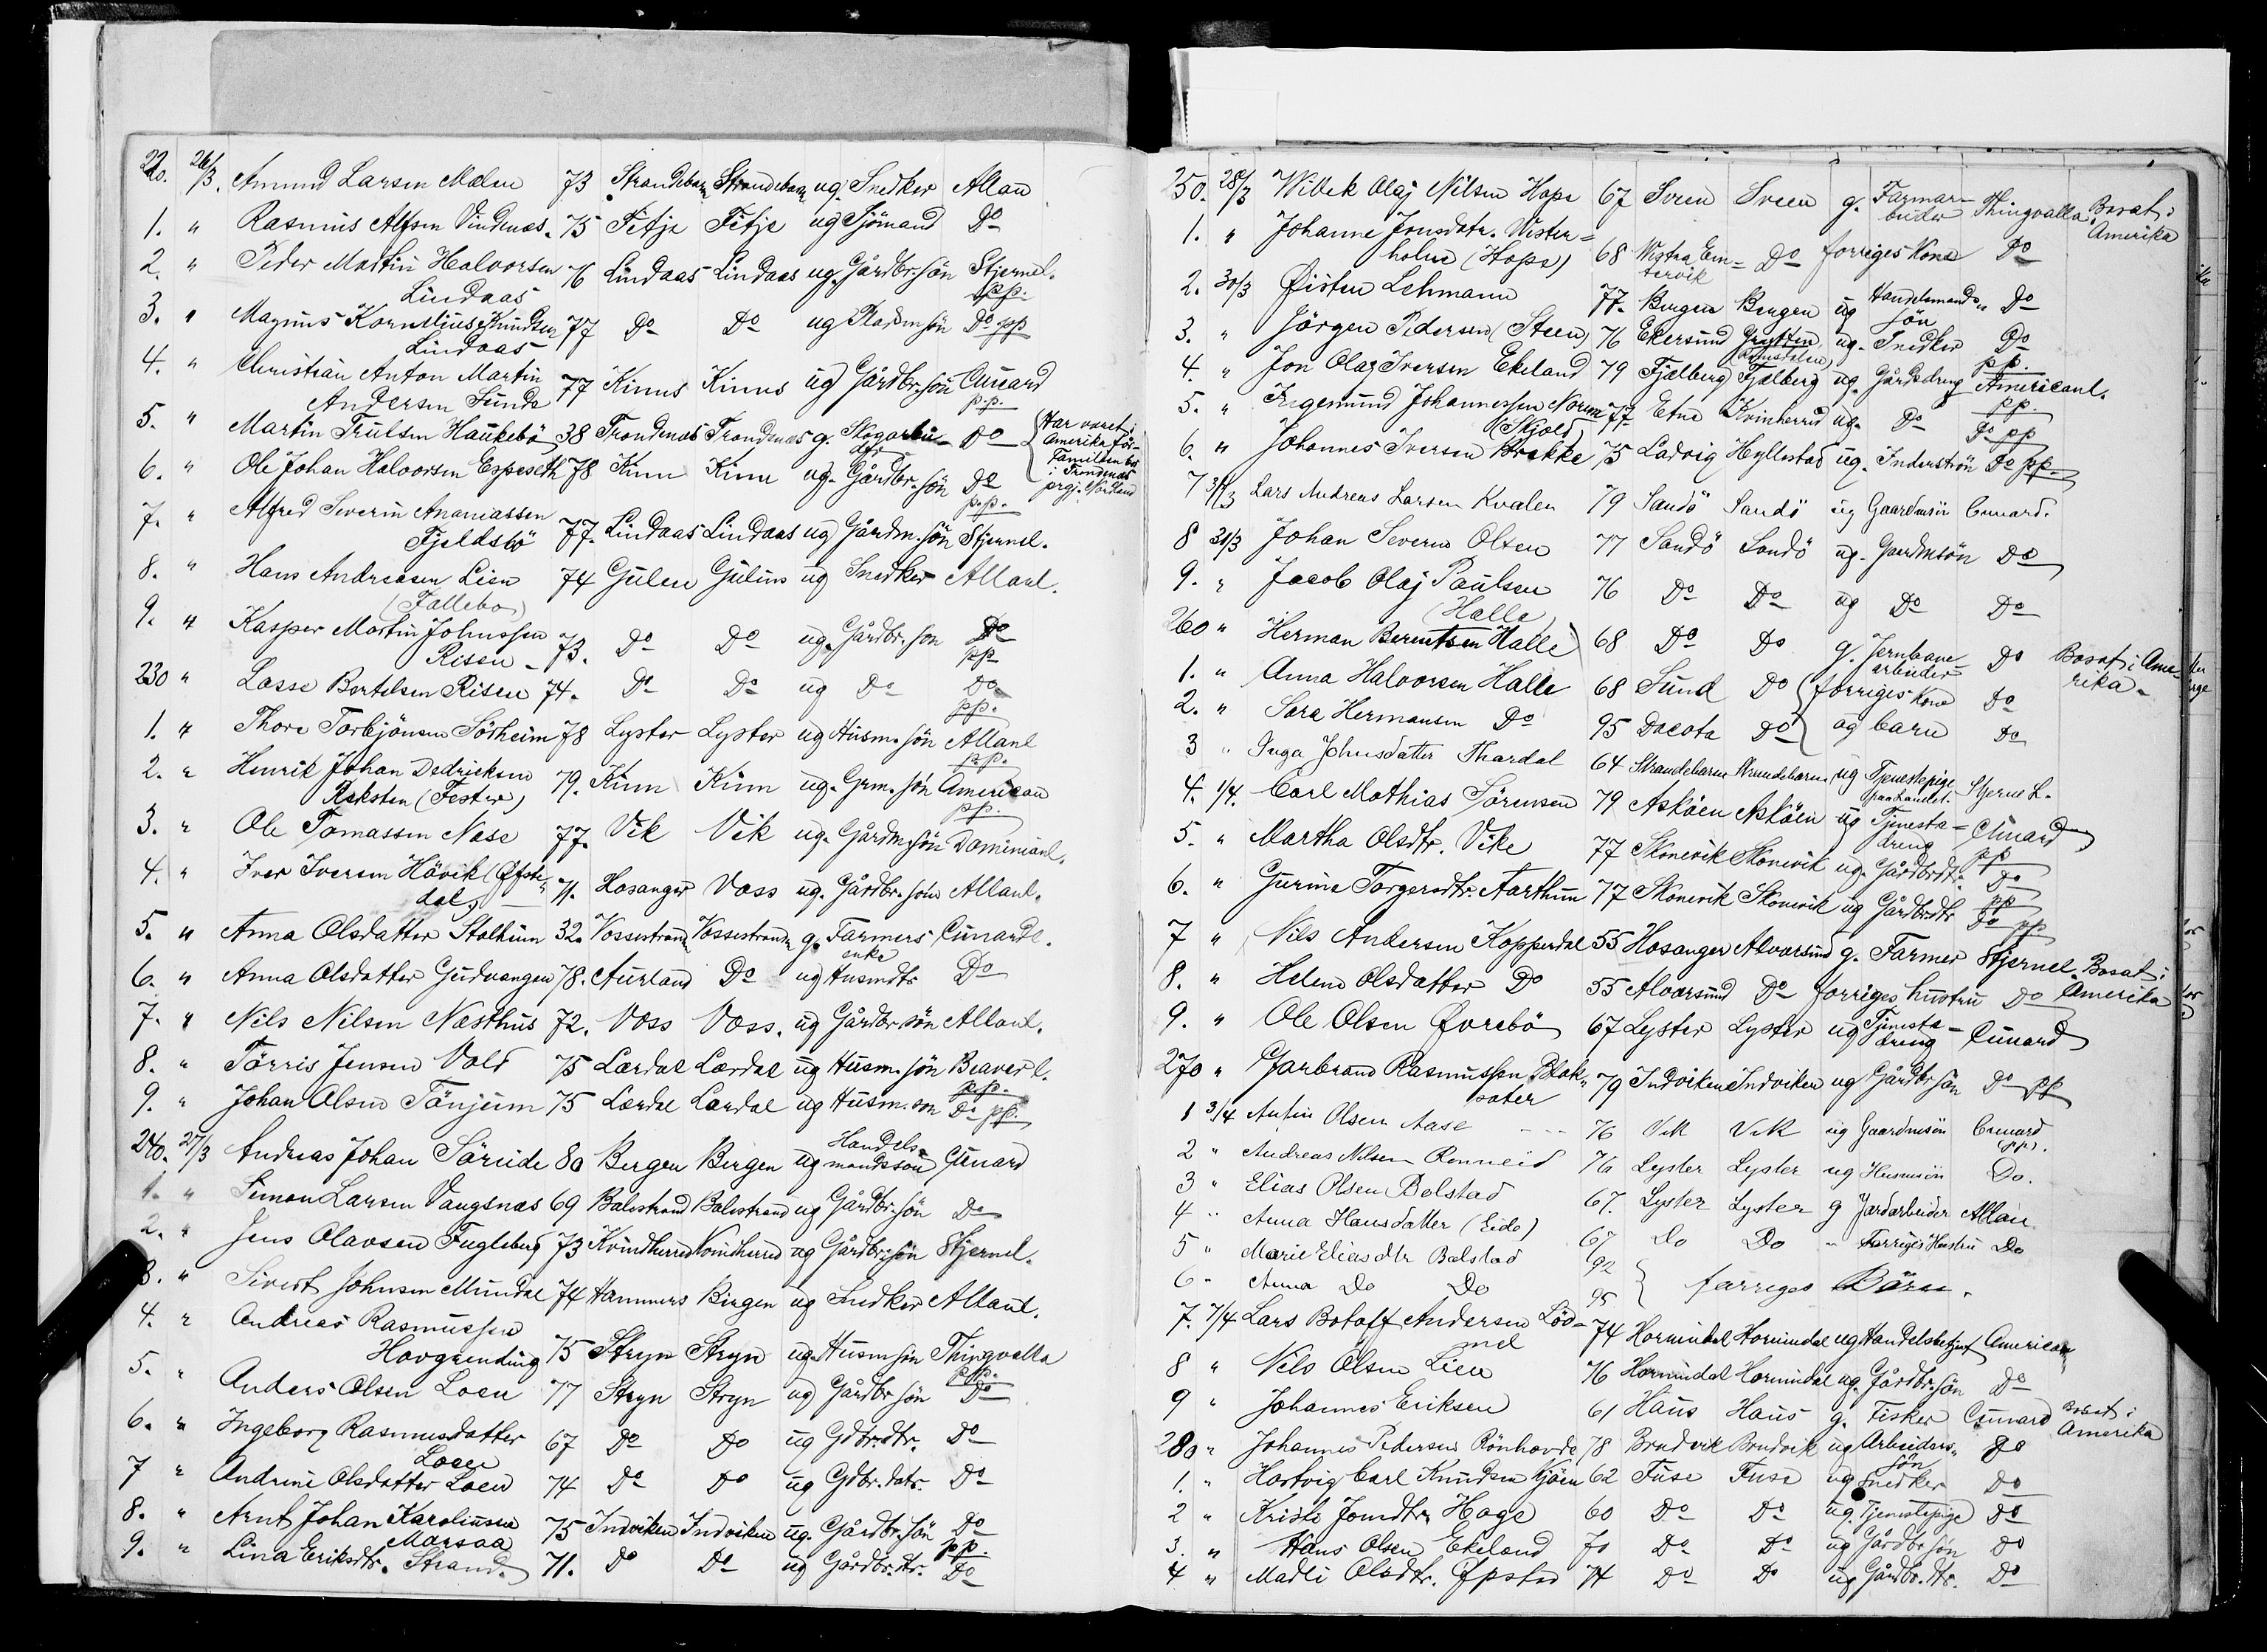 220. 26/3. Amund Larsen Mælen 73 Strandebarm Strandebarm ug. Snedker Allan
1. " Rasmus Alfsen Vindenæs. 75 Fitje Fitje ug Sjömand Do
2. " Peder Martin Halvorsen 76 Lindaas Lindaas ug. Gårdbr. sön Stjernel.
Lindaas pp.
3. " Magnus Kornelius Knudsen 77 Do Do ug Pladsm. sön Do pp
Lindaas
4. " Christian Anton Martin 77 Kinns Kinns ug Gårdbr. sön Cunard
Andersen Sunde p.p.
5. " Martin Trulsen Haukebö 38 Trondenæs Trondenæs g. Skogarbei- Do {Har været i
der Amerika för
Familien bor
i Trondenæs
prgj. Nordland
6. " Ole Johan Halvorsen Espeseth 78 Kinn Kinn ug. Gårdbr. sön Do
p.p.
7. " Alfred Severin Ananiassen 77. Lindaas Lindaas ug Gårdm. sön Stjernel.
Fjeldsbö
8. " Hans Andreasen Lien 74 Gulen Gulens ug Snedker Allanl.
(Fallebo)
9. " Kasper Martin Johnssen 73. Do Do ug. Gårdbr. son Do
Risen pp
230 " Lasse Bertelsen Risen 74. Do Do ug Do Do
pp.
1. " Thore Torbjönsen Sörheim 78 Lyster Lyster ug Husm. sön Allanl
p.p.
2. " Henrik Johan Dedricksen 79. Kinn Kinn ug. Grm. sön American
Reksten (Fester) pp.
3. " Ole Tomassen Nase 77. Vik Vik ug. Gårdm. sön Dominianl.
4. " Iver Iversen Hövik (Öfste- 71. Hosanger Voss ug. Gårdbr. sön Allanl.
dal)
5. " Anna Olsdatter Stalheim 32. Vossestranden Vossestranden g. Farmers Cunardl.
enke
6. " Anna Olsdatter Gudvangen 78. Aurland Do ug Husmdtr Do
7. " Nils Nilsen Næsthus 72. Voss Voss. ug Gårdbr. sön Allanl.
8. " Törris Jensen Vold 75 Lærdal Lærdal ug Husm. sön Beaver l.
p.p.
9. " Johan Olsen Tönjum 75 Lærdal Lærdal ug Husm. son Do pp.
240. 27/3 Andreas Johan Söreide 80 Bergen Bergen ug Handels- Cunard
mandssön
1. " Simon Larsen Vangsnæs 69 Balestrand Balestrand ug Gårdbr. sön Do
2. " Jens Olavsen Fugleberg 73 Kvindherred Kvindherred ug Gårdbr. sön Stjernel.
3. " Sivert Johnsen Mundal 74 Hammers Bergen ug Snedker Allanl.
4. " Andreas Rasmussen
Hovgrending 75 Stryn Stryn ug Husm sön Thingvalla
p.p.
5. " Anders Olsen Loen 77 Stryn Stryn ug Gårdbr sön Do
6. " Ingeborg Rasmusdatter 67 Do Do ug Gdbr. dtr. Do
Loen
7 " Andrine Olsdatter Loen 74 Do Do ug Gdbr. datr. Do
8. " Arnt Johan Karoliussen 75 Indviken Indviken ug. Gårdbr. sön Do
Marsaa pp.
9. " Lina Eriksdtr. Strand. 71. Do Do ug Gårdbr. dtr. Do
250. 28/3 Willek Olaj Nilsen Hope 67 Sveen Sveen g. Farmar- Thingvalla Bosat i
beider Amerika
1. " Johanne Jonsdatr. Wester- 68 Do forriges Kone Do
holm (Hope)
2. 30/3 Øisten Lehmann 77. Bergen Bergen ug Handelsmands- Do
sön
3. " Jörgen Pedersen (Steen) 76 Ekersund ug. Snedker Do
pp.
4. " Jon Olaj Iversen Ekeland 79 Fjelberg Fjelberg ug. Gårdsdreng Americanl.
pp.
5. " Ingemund Johannessen Norem 77. Etne Kvinherred ug. Do Do pp
(Skjold)
6. " Johannes Iversen Brekke 75 Ladvig Hyllestad ug. Inderstsön Do pp
7 31/3 Lars Andreas Larsen Kvalen 79 Sandö Sandö ug Gaardmsön Cunard.
8 31/3 Johan Severin Olsen 77 Sandö Sandö ug. Gaardmsön Do
9. " Jacob Olaj Paulsen 76 Do Do ug Do Do
(Halle)
260 " Herman Berentsen Halle 68 Do Do g. Jernbane- Do Bosat i Ame-
arbeider rika.
1. " Anna Halvorsen Halle 68 Sund Do {forriges Kone Do
2. " Sara Hermansen Do 95 Dacota Do } og barn Do
3 " Inga Johnsdatter Thardal 64 Strandebarm Strandebarm ug Tjenestepige Stjerne L.
paa Landet.
4. 1/4. Carl Mathias Sörensen 79 Asköen Asköen ug Tjeneste- Cunard
dreng pp
5. " Martha Olsdtr. Vike 77 Skonevik Skonevik ug. Gårdbrdtr. Do
pp
6. " Gurine Torgersdtr. Aarthun 77 Skonevik Skonevik ug Gårdbrdtr Do pp
7 " Nils Andersen Kopperdal 55 Hosanger Alvorsund g. Farmer Stjernel. Bosat i
8. " Helene Olsdatter Do 55 Alvorsund Do forriges hustru Do Amerika
9. " Ole Olsen Øvrebö 67 Lyster Lyster ug Tjeneste- Cunard
dreng
270 " Gjarbrand Rasmussen Blak- 79 Indviken Indviken ug Gårdbr. sön Do pp
sæter
1 3/4 Anfin Olsen Aase 76 Vik Vik ug Gaardmsön Cunard
(pp).
2 " Andreas Nilsen Ronneid 76 Lyster Lyster ug Husmsön Do.
3 " Elias Olsen Bolstad 67. Lyster Lyster g Jordarbeider Allan
4 " Anna Hansdatter (Eide) 67 Do Do " Forriges Hustru Do
5 " Marie Eliasdtr Bolstad 92 }
6 " Anna Do Do 95 } farriges Börn.
7. 7/4 Lars Botolf Andersen Löd- 74 Hornindal Hornindal ug Handelsbetjent American
mel
8 " Nils Olsen Lien 76 Hornindal Hornindal ug. Gårdbr. sön Do
9 " Johannes Eriksen 61 Haus Haus g. Fisker Cunard Bosat i
Amerika
280 " Johannes Pedersen Rönhovde 78 Brudvik Brudvik ug Arbeiders- Do
sön
1. " Hartvig Carl Knudsen Kjöen 62 Fuse Fuse ug Snedker Do
2 " Kristi Jonsdtr. Hage 60 Do Do ug. Tjenstepige Do
3. " Hans Olsen Ekeland 70 Do Do ug Gårdbr sön Do
4 " Madli Olsdtr. Øpstad 74 Do Do ug Gårdbr. dtr. Do